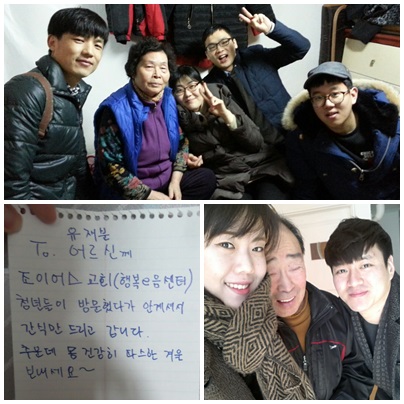 유재분
To. 어르신께
조이어스 교회(행복e음센터)
청년들이 방문했다가 안계셔서
간식만 드리고 갑니다.
추운데 몸 건강히 따스한 겨울
보내세요~